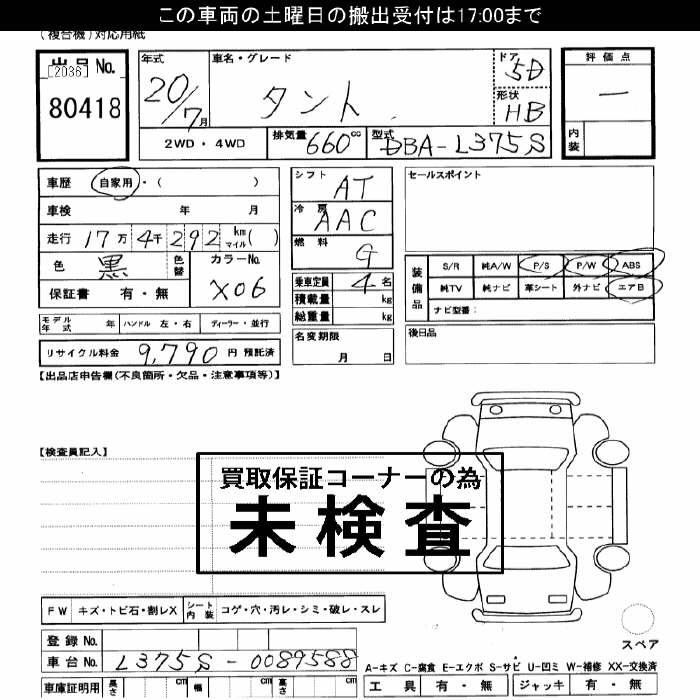 この車両の土曜日の搬出受付は17:00まで
(複合機)対応用紙
出品 No.
[2036]
80418
年式
20/7月
車名・グレード
タント
ドア
5D
形状
HB
評価点
一
内装
2WD・4WD
排気量 660cc
型式 DBA-L375S
車歴 自家用・( )
車検 年 月
走行 17万 4千 292 km マイル( )
色 黒 色替
カラーNo. X06
保証書 有・無
シフト AT
冷房 AAC
燃料 G
乗車定員 4名
積載量 kg
総重量 kg
セールスポイント
装備品
S/R 純A/W P/S P/W ABS
純TV 純ナビ 革シート 外ナビ エアB
ナビ型番:
モデル年式 年 ハンドル 左・右 ディーラー・並行
名変期限 月 日
後日品
リサイクル料金 9,790 円 預託済
【出品店申告欄(不良箇所・欠品・注意事項等)】
【検査員記入】
買取保証コーナーの為
未検査
FW キズ・トビ石・割レX
シート内装 コゲ・穴・汚レ・シミ・破レ・スレ
スペア
登録 No.
車台 No. L375S-0089588
車庫証明用 長さ cm 幅 cm 高さ cm
A-キズ C-腐食 E-エクボ S-サビ U-凹ミ W-補修 XX-交換済
工具 有・無 ジャッキ 有・無